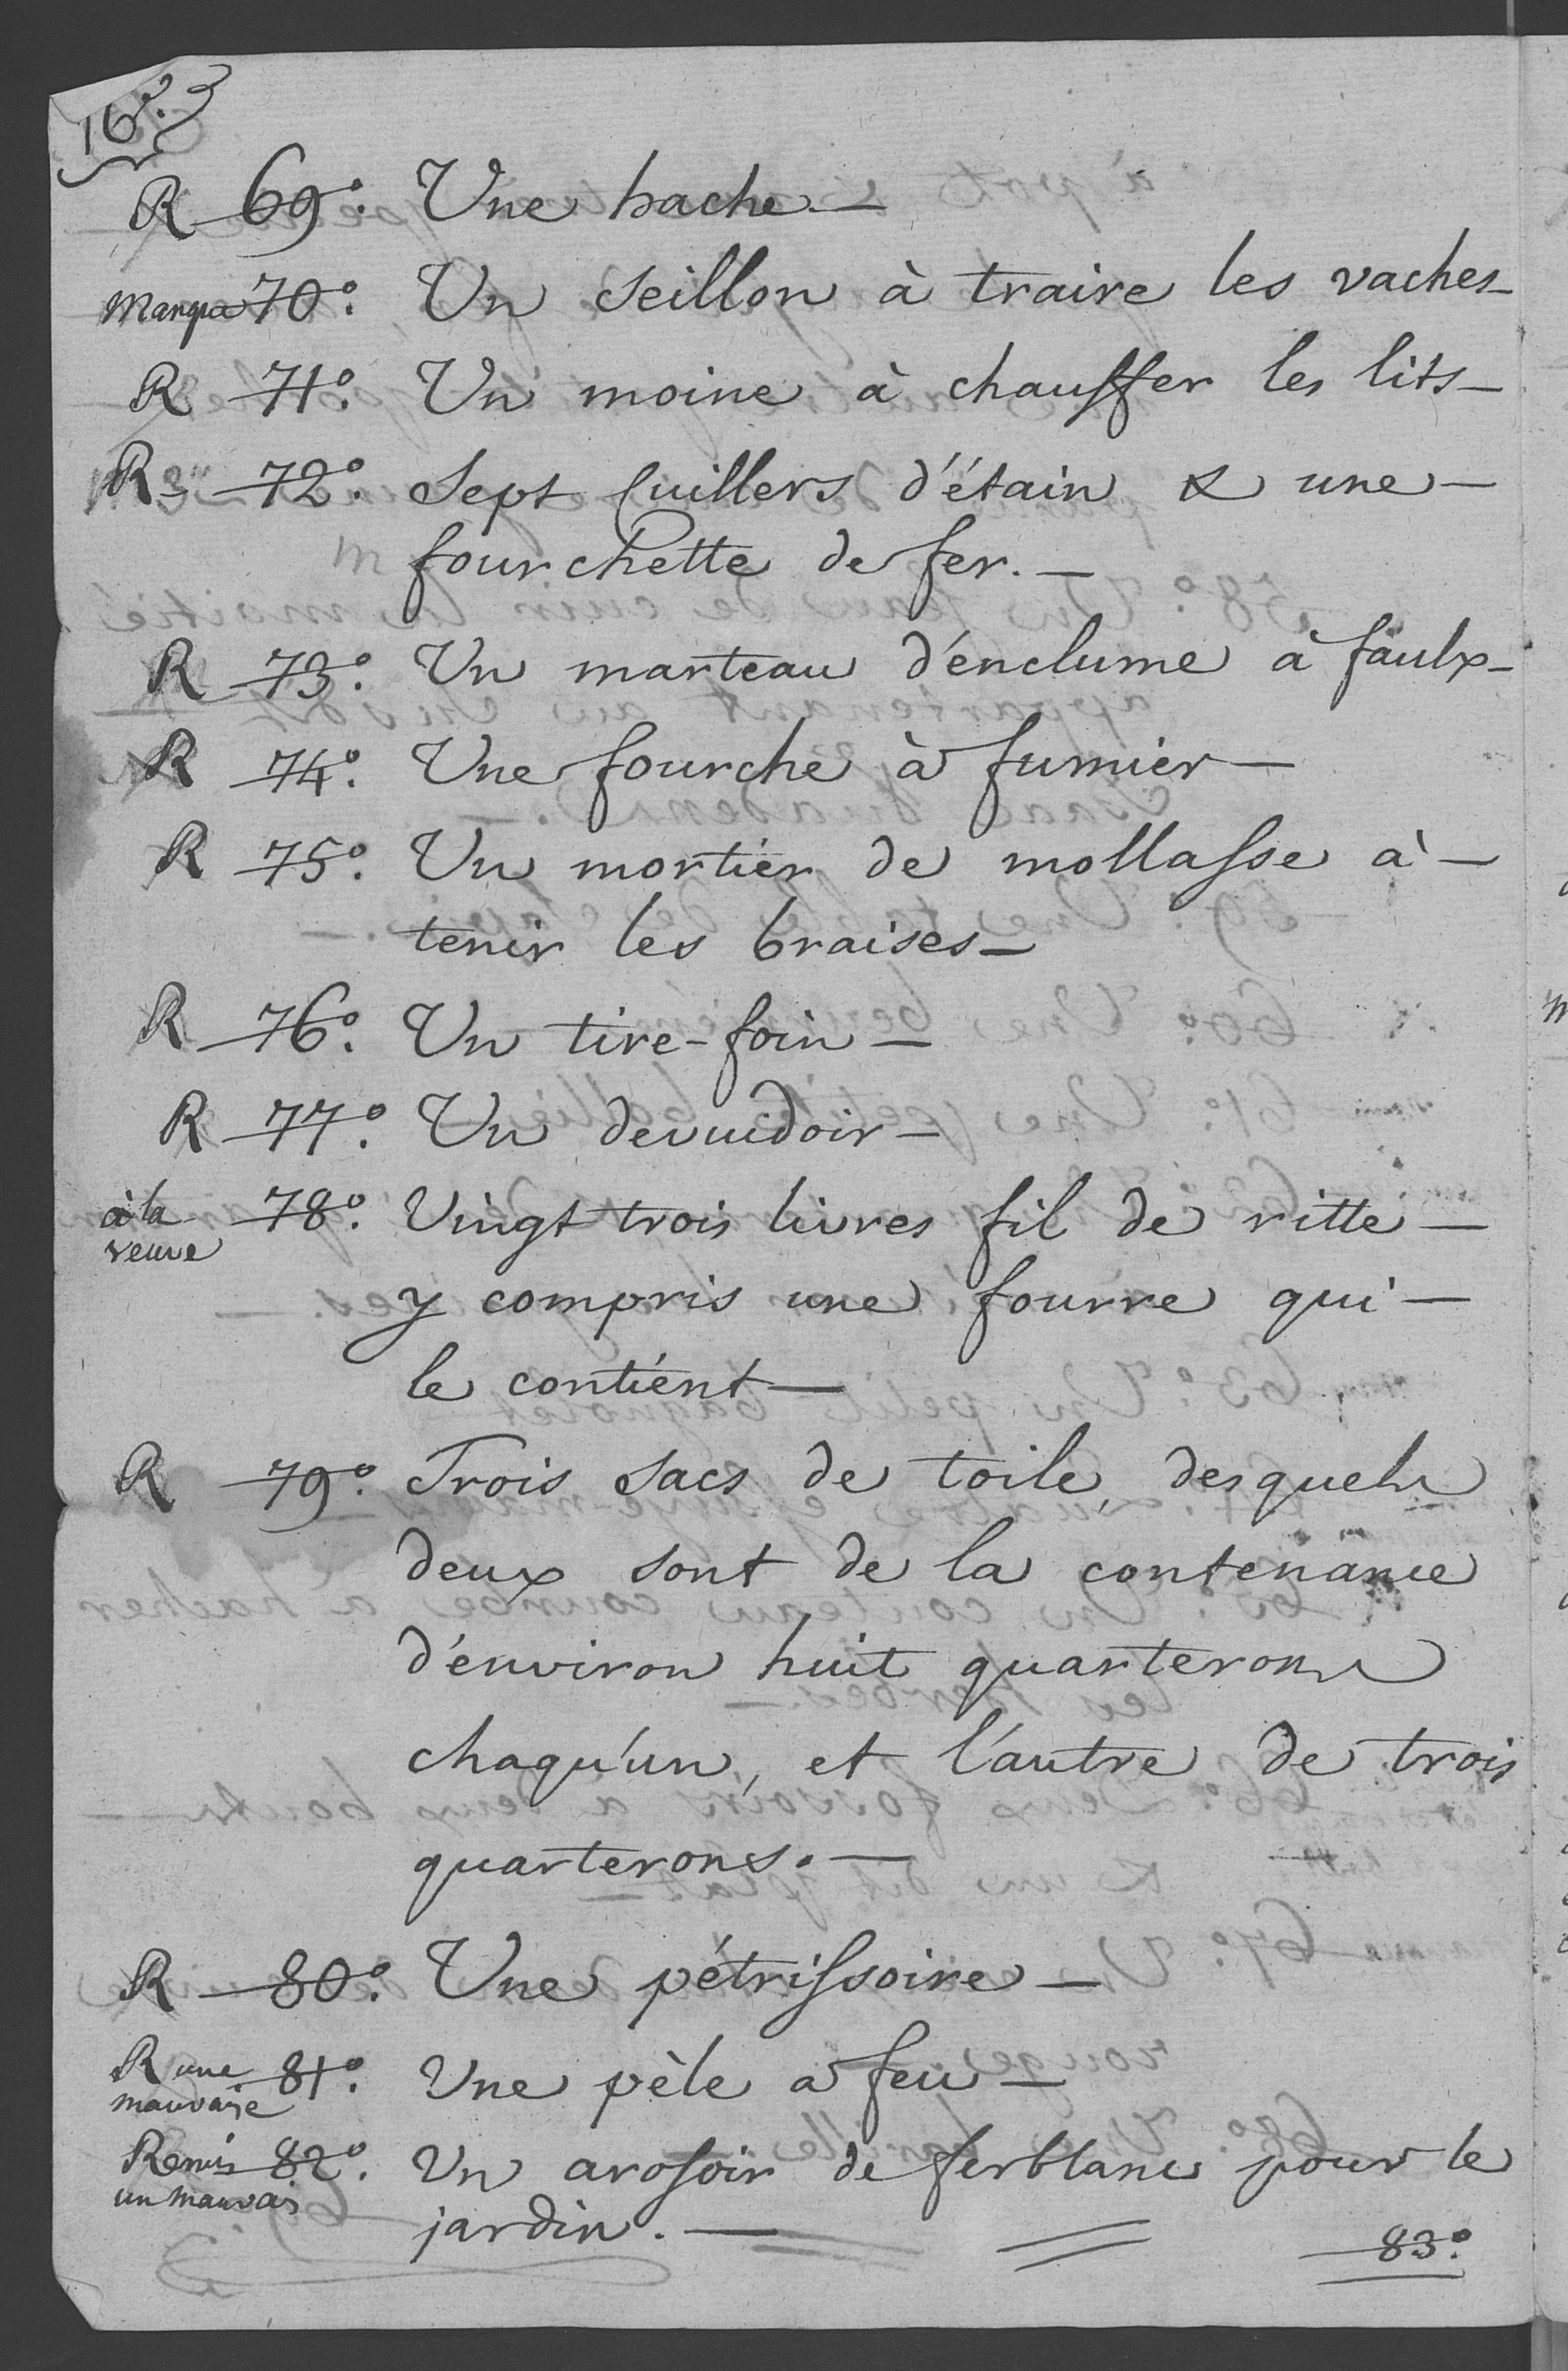 16.
R 69.° Une hache. —
Manque 70.° Un seillon à traire les vaches —
R 71.° Un moine à chauffer les lits —
R 72.° Sept Cuillers d'étain & une —
fourchette de fer. —
R 73.° Un marteau d'énclume à faulx —
R 74.° Une fourche à fumier —
R 75.° Un mortier de mollasse à —
tenir les braises —
R 76.° Un tire-foin —
R 77.° Un devuidoir —
à la veuve 78.° Vingt trois livres fil de ritte —
y compris une fourre qui —
le contient —
R 79.° Trois sacs de toile, desquels
deux sont de la contenance
d'énviron huit quarterons
chaqu'un, et l'autre de trois
quarterons. —
R 80.° Une pétrissoire —
R une mauvaise 81.° Une pèle a feu —
Remis un mauvais 82.° Un arosoir de ferblanc pour le
jardin. —
83.°